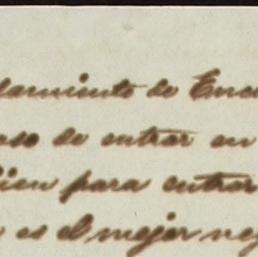 damiento de Ene
oso de entrar en
bien para entrar
es el mejor neg